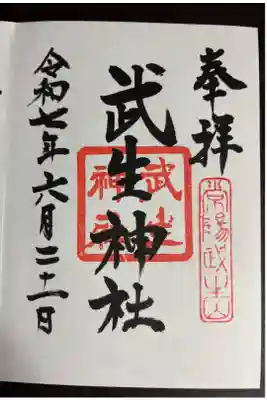 奉拝
武生神社
令和七年六月二十一日